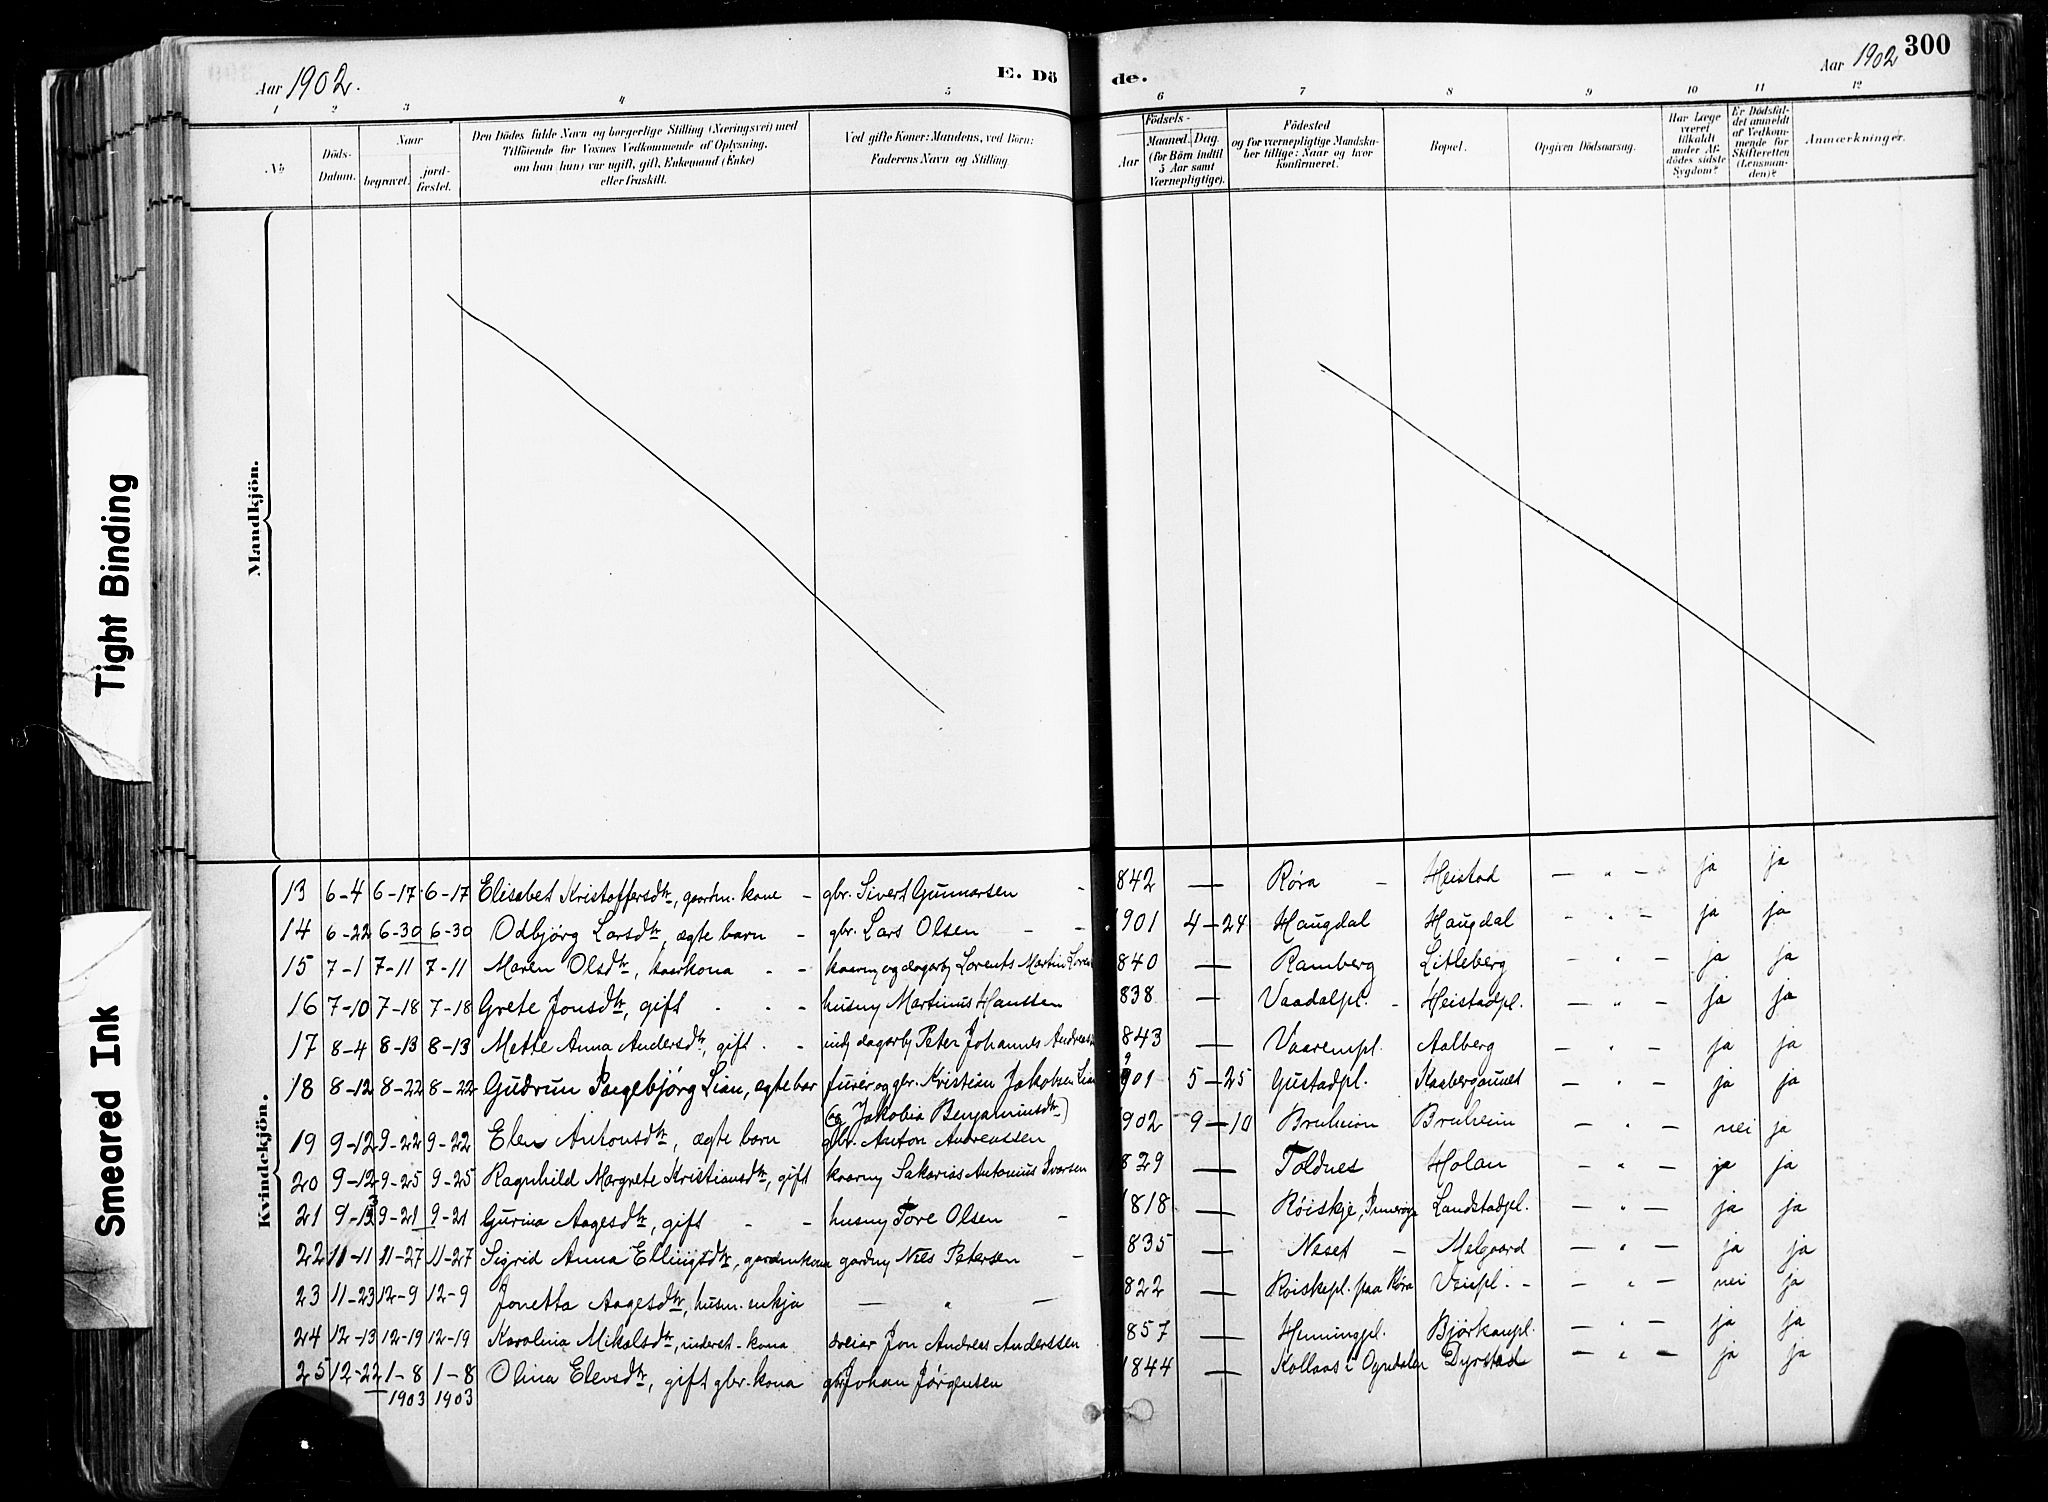 Aar 1902.
E. Dö
de.
Aar 1902
300
1 2 3 4 5 6 7 8 9 10 11 12
No
Döds-
Datum.
Naar
begravet.
jord-
fæstet.
Den Dödes fulde Navn og borgerlige Stilling (Næringsvei) med
Tilföiende for Voxnes Vedkommende af Oplysning,
om han (hun) var ugift, gift, Enkemand (Enke)
eller fraskilt.
Ved gifte Koner: Mandens, ved Börn:
Faderens Navn og Stilling.
Födsels-
Aar
Maaned. Dag.
(for Börn indtil
5 Aar samt
Værnepligtige).
Födested
og for værnepligtige Mandska-
ber tillige: Naar og hvor
konfirmeret.
Bopæl.
Opgiven Dödsaarsag.
Har Læge
været
tilkaldt
under Af-
dödes sidste
Sygdom?
Er Dödsfal-
det anmeldt
af Vedkom-
mende for
Skifteretten
(Lensman-
den)?
Anmærkninger.
Mandkjön.
Kvindekjön.
Tight Binding
Smeared Ink
13 6-4 6-17 6-17 Elisabet Kristoffersdtr, gaardm. kone - gbr. Sivert Gunnarsen - 842 — Røra - Heistad — " — ja ja
14 6-22 6-30 6-30 Odbjörg Larsdtr, ægte barn - gbr. Lars Olsen - - 1901 4-24 Haugdal Haugdal — " — ja ja
15 7-1 7-11 7-11 Maren Olsdtr, kaarkona - - kaarm og dagarb Lorents Martin 840 — Ramberg Litleberg — " — ja ja
16 7-10 7-18 7-18 Grete Jonsdtr, gift - - - husm Martinus Hanssen 838 — Vaadalpl. - Heistadpl. — " — ja ja
17 8-4 8-13 8-13 Mette Anna Andersdtr, gift - - ind dagarb Peter Johannes 843 — Vaarempl. Aalberg — " — ja ja
18 8-12 8-22 8-22 Gudrun Ingebjørg Lian, ægte bar furér og gbr. Kristian Jakobsen Lian 901 5-25 Gustadpl. Kaabergaunet — " — ja ja
(og Jakobia Benjaminsdtr)
19 9-12 9-22 9-22 Elen Antonsdtr, ægte barn gbr. Anton Andreassen 902 9-10 Bruheim Bruheim — " — nei ja
20 9-12 9-25 9-25 Ragnhild Margrete Kristiansdtr, gift kaarm Sakarias Antonius Ivarsen 829 — Toldnes Holan — " — ja ja
21 9-13 9-21 9-21 Gurina Aagesdtr, gift - - husm Tore Olsen - 1818 — Røiskje, Landstadpl. — " — ja ja
22 11-11 11-27 11-27 Sigrid Anna Ellingsdtr, gardmkona gardm Nils Petersen - 835 — Neset - Melgaard — " — ja ja
23 11-23 12-9 12-9 Jonetta Aagesdtr, husm. enkja — " — 822 — Røiskepl. paa Røra - — " — nei ja
24 12-13 12-19 12-19 Karolina Mikalsdtr, inderst-kona dreiar Jon Andreas Anderssen 857 — Henningpl. Bjørkanpl. — " — ja ja
25 12-22 1-8 1-8 Olina Elevsdtr, gift gbr. kona gbr Johan Jørgensen 1844 — Kollaas i Ogndalen Dyrstad — " — ja ja
1903 1903